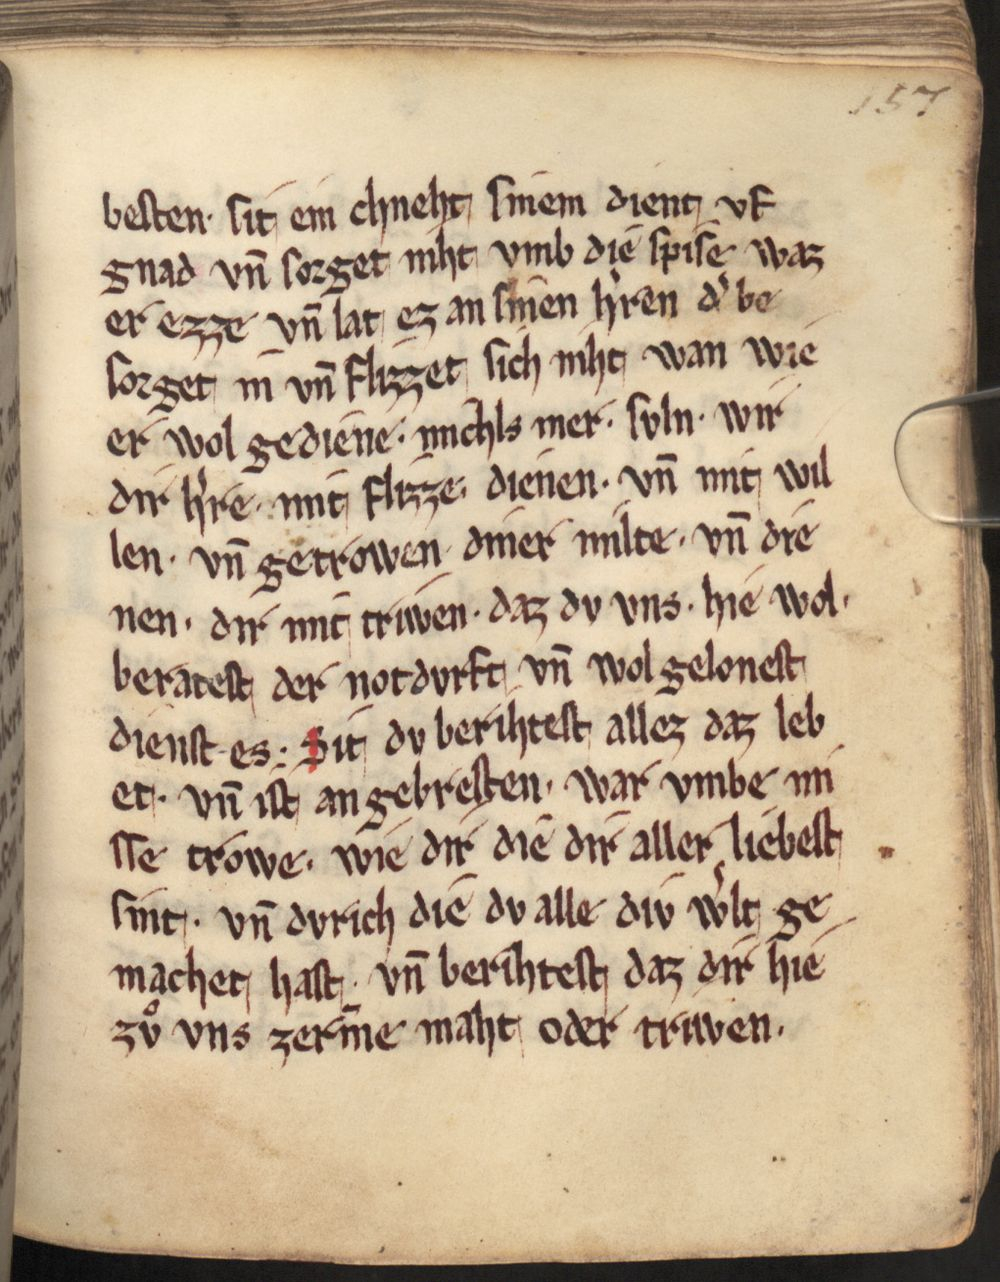 157
besten· sit ein chneht sinem dient vf
gnad vn̄ sorget niht vmb die spise waz
er ezze vn̄ lat ez an sinen h'ren d' be
sorget in vn̄ flizzet sich niht wan wie
er wol gediene· michls mer· svln· wir
dir h're· mit flizze· dienen· vn̄ mit wil
len· vn̄ getrowen diner milte· vn̄ die
nen· dir mit triwen· daz dv vns· hie wol·
beratest der notdvrft vn̄ wol gelonest
dienst-es: Sit dv berihtest allez daz leb
et· vn̄ ist an gebresten· war vmbe mi
sse trowe· wie dir die dir aller liebest
sint· vn̄ dvrich die dv alle div w'lt ge
machet hast· vn̄ berihtest daz dir hie
zvͦ vns zerin̄e maht oder triwen·